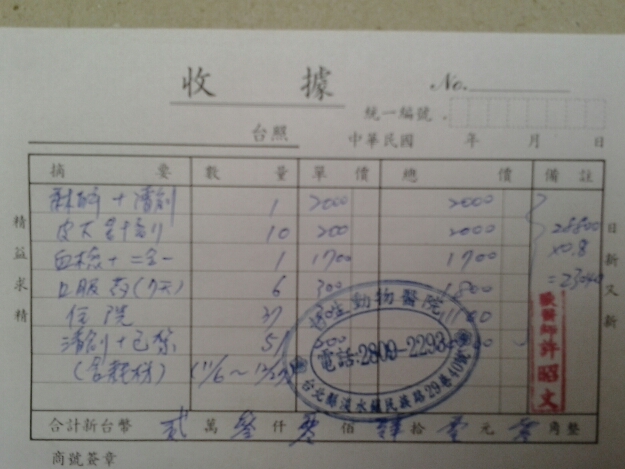 收 據
No.
統一編號
台照 中華民國 年 月 日
摘 要 數 量 單 價 總 價 備 註
麻醉+清創 1 2000 2000
10 200 2000 28800
血檢+二合一 1 1700 1700 x0.8
口服藥(7天) 6 300 1800 =23040
住院 37
清創+包紮 51
(含耗材) (11/6~12/
精益求精
日新又新
動物醫院
電話:2809-2293
台北縣淡水鎮民族路29巷40號
獸醫師許昭文
合計新台幣 貳 萬 參 仟 零 佰 肆 拾 零 元 零 角整
商號簽章